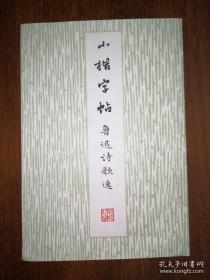 小楷字帖
鲁迅诗歌选
孔夫子旧书网